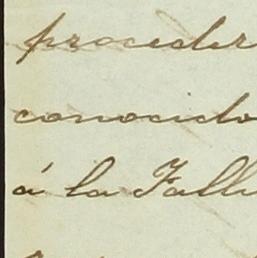 proceder
conocido
á la Falli